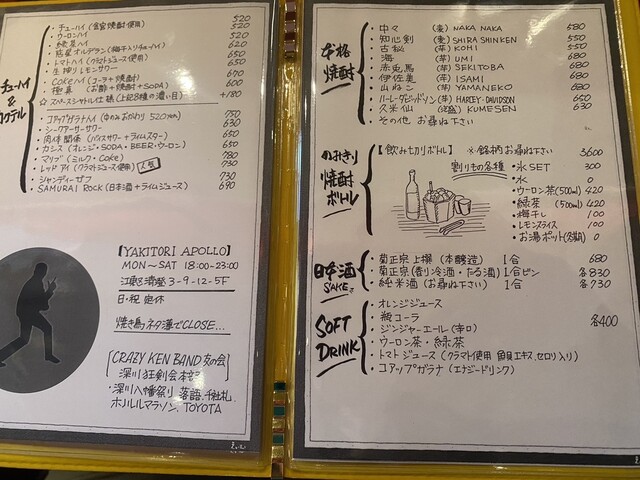 チューハイ & カクテル
・チューハイ (金宮焼酎使用) 520
・ウーロンハイ 520
・緑茶ハイ 620
・惑星オルデラン (梅干入りチューハイ) 650
・トマトハイ (クラマトジュース使用) 650
・生搾りレモンサワー
・COKEハイ (コーラ+焼酎) 670
(お酢+焼酎+SODA) 600
☆スペースシャトル仕様 (上記8種の濃い目) +180
・コアップガラナハイ (中のおかわり 520) 750
・シークアーサーサワー 630
・肉体関係 (バイスサワー+ライムスター) 650
・カシス (オレンジ・SODA・BEER・ウーロン) 650
・マリブ (ミルク・COKE) 780
・レッドアイ (クラマトジュース使用) 人気 730
・シャンディーガフ 730
・SAMURAI ROCK (日本酒+ライムジュース) 690
【YAKITORI APOLLO】
MON〜SAT 18:00-23:00
3-9-12-5F
日・祝 定休
焼き鳥ネタ薄でCLOSE...
[CRAZY KEN BAND 友の会
深川狂剣会本部]
・深川八幡祭り、落語、千社札、
ホノルルマラソン、TOYOTA
本格焼酎
・中々 (麦) NAKA NAKA 580
・知心剣 (麦) SHIRA SHINKEN 550
・古秘 (芋) KOHI 550
・海 (芋) UMI 680
・赤兎馬 (芋) SEKITOBA 680
・伊佐美 (芋) ISAMI 680
・山ねこ (芋) YAMANEKO 680
・ハーレーダビッドソン (芋) HARLEY-DAVIDSON 650
・久米仙 (泡盛) KUMESEN 630
・その他 お尋ね下さい
焼酎ボトル
【飲みきりボトル】 ※銘柄お尋ね下さい 3600
割りもの各種
・氷SET 300
・水 0
・ウーロン茶 (500ml) 420
・緑茶 (500ml) 420
・梅干し 100
・レモンスライス 100
・お湯ポット 0
日本酒 SAKE
・菊正宗 上撰 (本醸造) 1合 680
・菊正宗 (香り冷酒・たる酒) 1合ビン 各830
・純米酒 (お尋ね下さい) 1合 各730
SOFT DRINK
・オレンジジュース
・瓶コーラ
・ジンジャーエール (辛口) 各400
・ウーロン茶・緑茶
・トマトジュース (クラマト使用 魚貝エキス、セロリ入り)
・コアップガラナ (エナジードリンク)